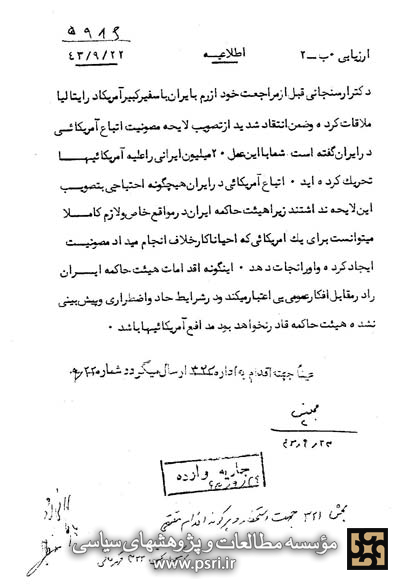 ۵۹۸۶
۴۳/۹/۲۲
اطلاعیه
ارزیابی ۰ب ــ۲
دکتر ارسنجانی قبل از مراجعت خود از رم با ایران با سفیر کبیر آمریکا در ایتالیا
ملاقات کرده وضمن انتقاد شدید از تصویب لایحه مصونیت اتباع آمریکائی
در ایران گفته است شما با این عمل ۲۰ میلیون ایرانی را علیه آمریکائیها
تحریک کرده اید ۰ اتباع آمریکائی در ایران هیچگونه احتیاجی بتصویب
این لایحه نداشتند زیرا هیئت حاکمه ایران در مواقع خاص ولازم کاملا
میتوانست برای یك امریکائی که احیانا کار خلاف انجام میداد مصونیت
ایجاد کرده و اورا نجات دهد ۰ اینگونه اقدامات هیئت حاکمه ایران
را در مقابل افکار عمومی بی اعتبار میکند ودر شرایط حاد واضطراری وپیش بینی
نشده هیئت حاکمه قادر نخواهد بود مدافع آمریکائیها باشد ۰
عیناً جهت اقدام به اداره ۳۲۲ ارسال میگردد شماره
۴۳/۹/۲۳
جاریه وارده
بخش ۳۲۱ جهت استحضار و هرگونه اقدام مقتضی
مؤسسه مطالعات و پژوهشهای سیاسی
www.psri.ir